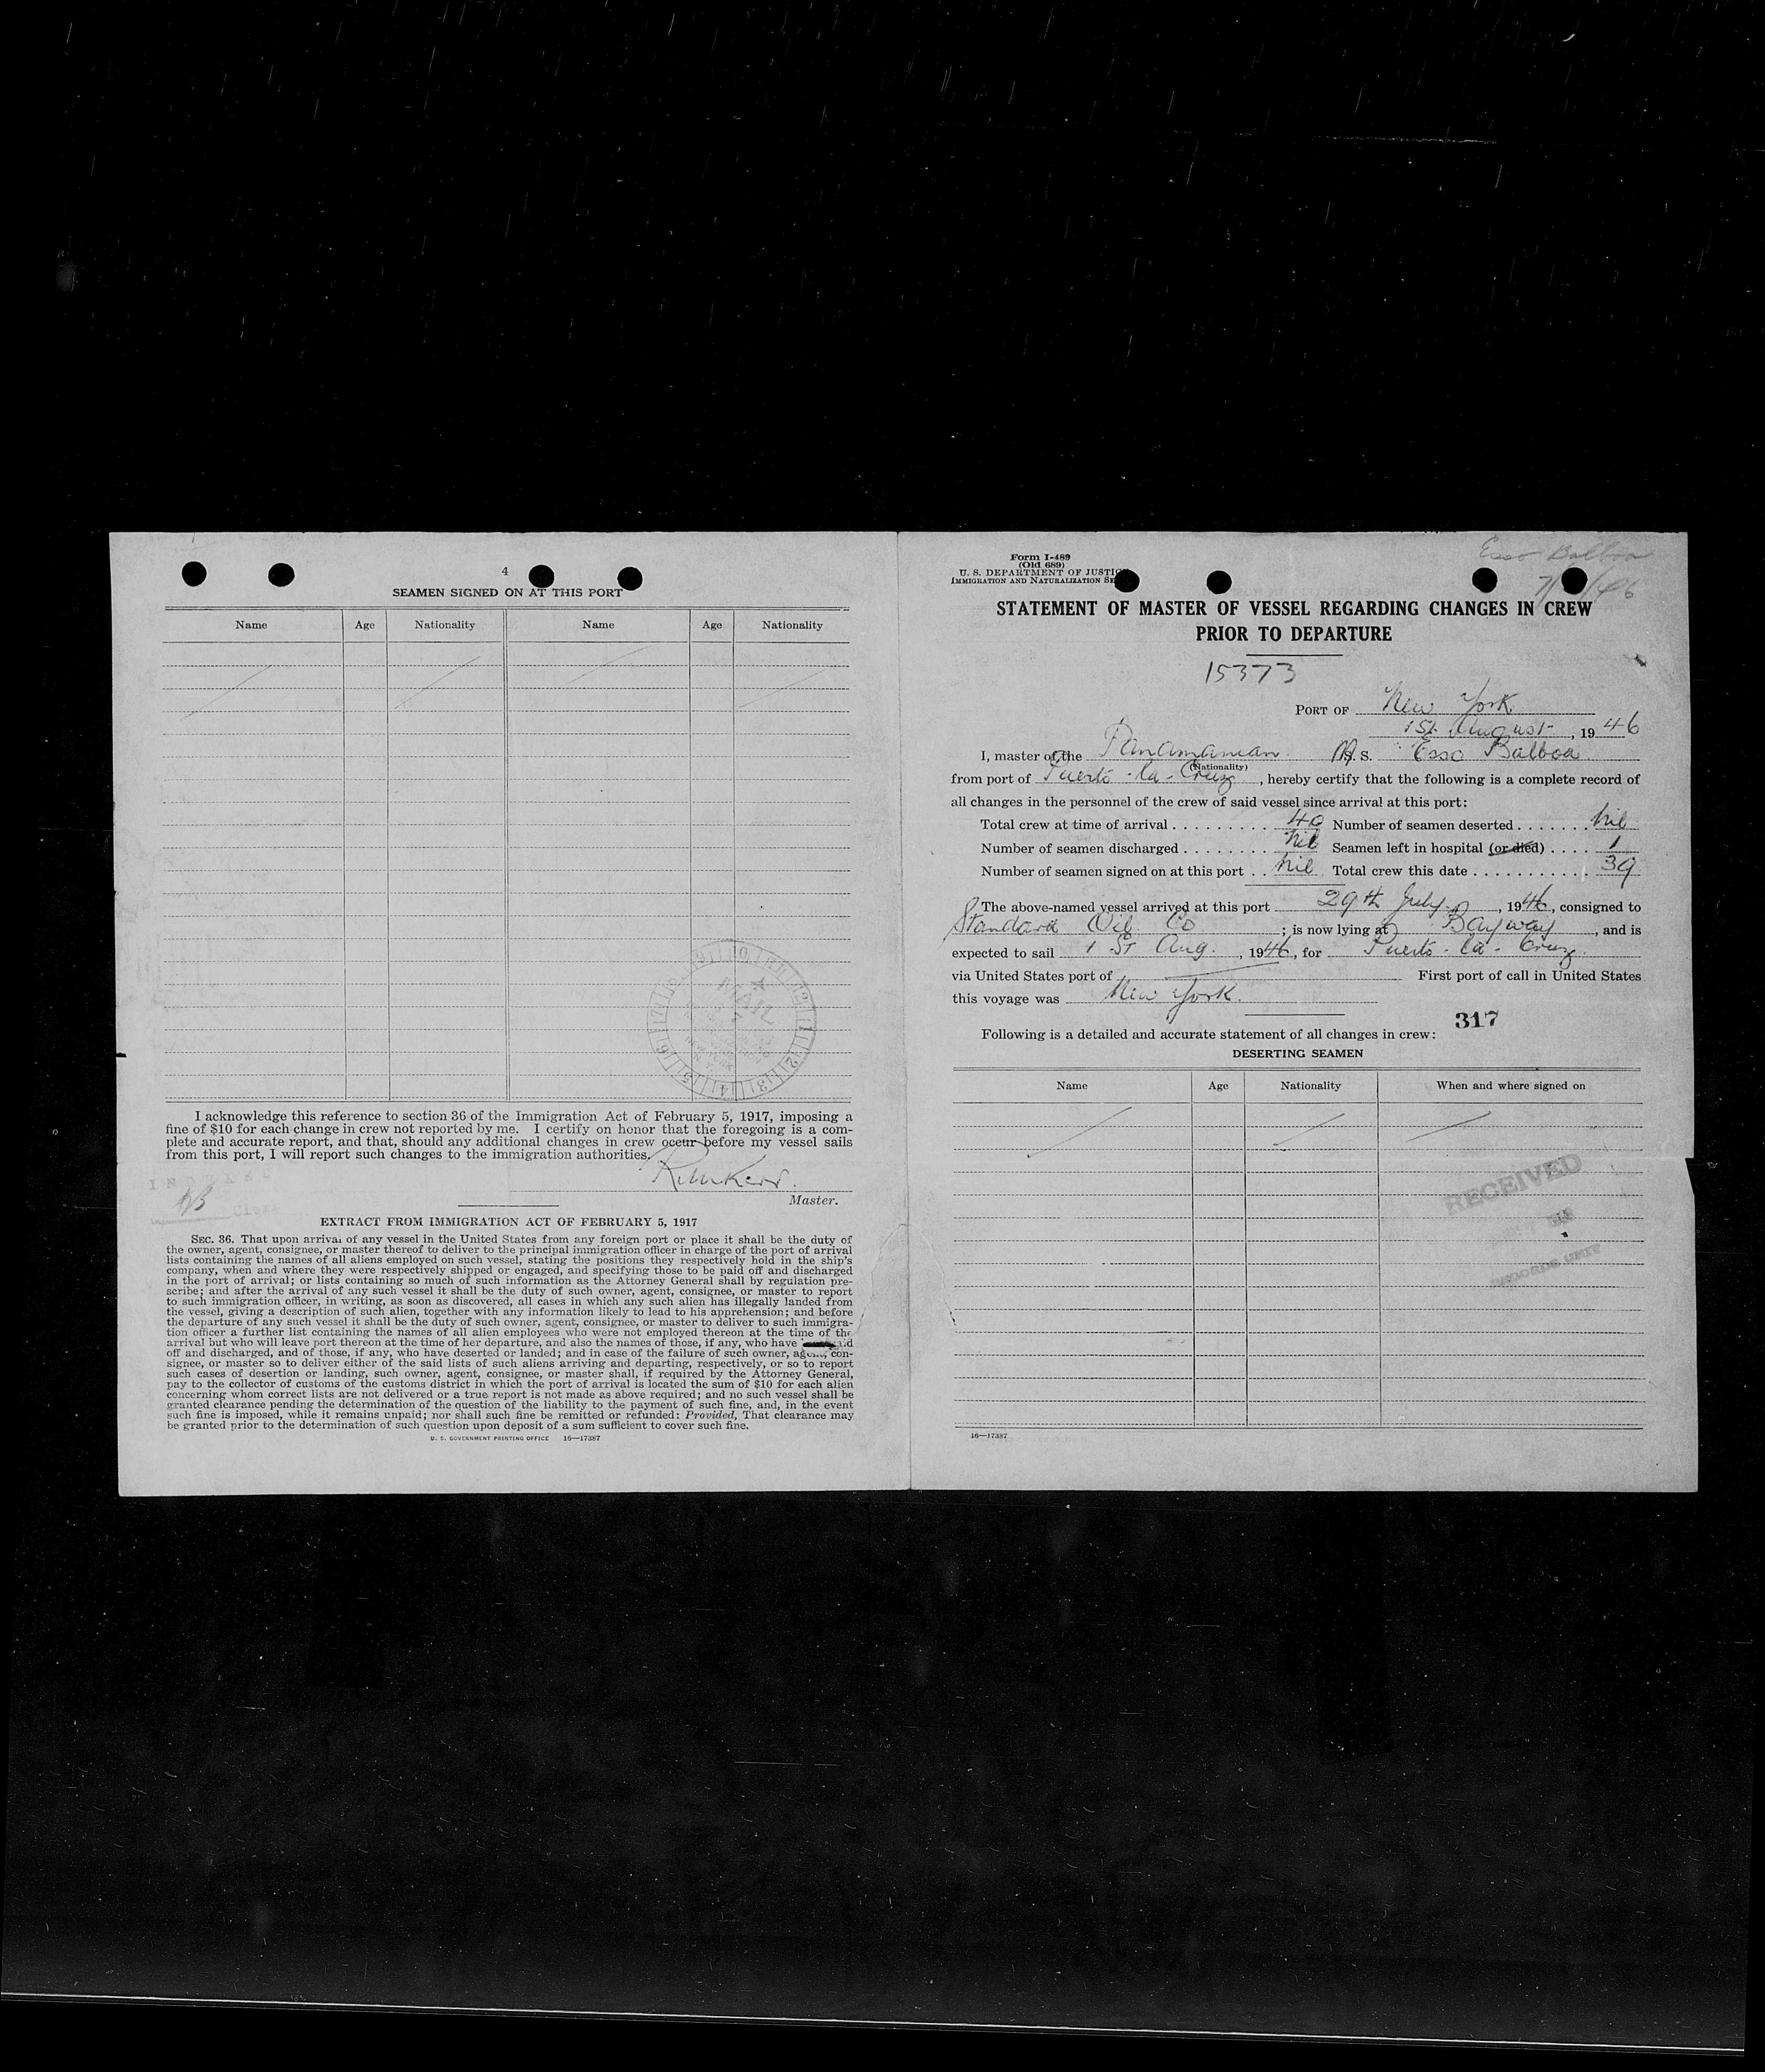 4
SEAMEN SIGNED ON AT THIS PORT
Name Age Nationality Name Age Nationality
I acknowledge this reference to section 36 of the Immigration Act of February 5, 1917, imposing a
fine of $10 for each change in crew not reported by me. I certify on honor that the foregoing is a com-
plete and accurate report, and that, should any additional changes in crew occur before my vessel sails
from this port, I will report such changes to the immigration authorities.
Master.
EXTRACT FROM IMMIGRATION ACT OF FEBRUARY 5, 1917
SEC. 36. That upon arrival of any vessel in the United States from any foreign port or place it shall be the duty of
the owner, agent, consignee, or master thereof to deliver to the principal immigration officer in charge of the port of arrival
lists containing the names of all aliens employed on such vessel, stating the positions they respectively hold in the ship's
company, when and where they were respectively shipped or engaged, and specifying those to be paid off and discharged
in the port of arrival; or lists containing so much of such information as the Attorney General shall by regulation pre-
scribe; and after the arrival of any such vessel it shall be the duty of such owner, agent, consignee, or master to report
to such immigration officer, in writing, as soon as discovered, all cases in which any such alien has illegally landed from
the vessel, giving a description of such alien, together with any information likely to lead to his apprehension; and before
the departure of any such vessel it shall be the duty of such owner, agent, consignee, or master to deliver to such immigra-
tion officer a further list containing the names of all alien employees who were not employed thereon at the time of the
arrival but who will leave port thereon at the time of her departure, and also the names of those, if any, who have
off and discharged, and of those, if any, who have deserted or landed; and in case of the failure of such owner, agent, con-
signee, or master so to deliver either of the said lists of such aliens arriving and departing, respectively, or so to report
such cases of desertion or landing, such owner, agent, consignee, or master shall, if required by the Attorney General,
pay to the collector of customs of the customs district in which the port of arrival is located the sum of $10 for each alien
concerning whom correct lists are not delivered or a true report is not made as above required; and no such vessel shall be
granted clearance pending the determination of the question of the liability to the payment of such fine, and, in the event
such fine is imposed, while it remains unpaid; nor shall such fine be remitted or refunded: Provided, That clearance may
be granted prior to the determination of such question upon deposit of a sum sufficient to cover such fine.
U. S. GOVERNMENT PRINTING OFFICE 16—17387
Esso Balboa
Form I-489
(Old 689)
U. S. DEPARTMENT OF JUSTIC
IMMIGRATION AND NATURALIZATION SE
STATEMENT OF MASTER OF VESSEL REGARDING CHANGES IN CREW
PRIOR TO DEPARTURE
15373
PORT OF New York
1st August, 1946
I, master of the Panamanian M. S. Esso Balboa
(Nationality)
from port of Puerto-la-Cruz, hereby certify that the following is a complete record of
all changes in the personnel of the crew of said vessel since arrival at this port:
Total crew at time of arrival . . . . . . . . . . 40 Number of seamen deserted . . . . . . . nil
Number of seamen discharged . . . . . . . . . nil Seamen left in hospital (or died) . . . . 1
Number of seamen signed on at this port . . nil Total crew this date . . . . . . . . . . . 39
The above-named vessel arrived at this port 29th July, 1946, consigned to
Standard Oil Co ; is now lying at Bayway, and is
expected to sail 1st Aug., 1946, for Puerto-la-Cruz.
via United States port of First port of call in United States
this voyage was New York.
317
Following is a detailed and accurate statement of all changes in crew:
DESERTING SEAMEN
Name Age Nationality When and where signed on
RECEIVED
RECORDS UNIT
16—17387